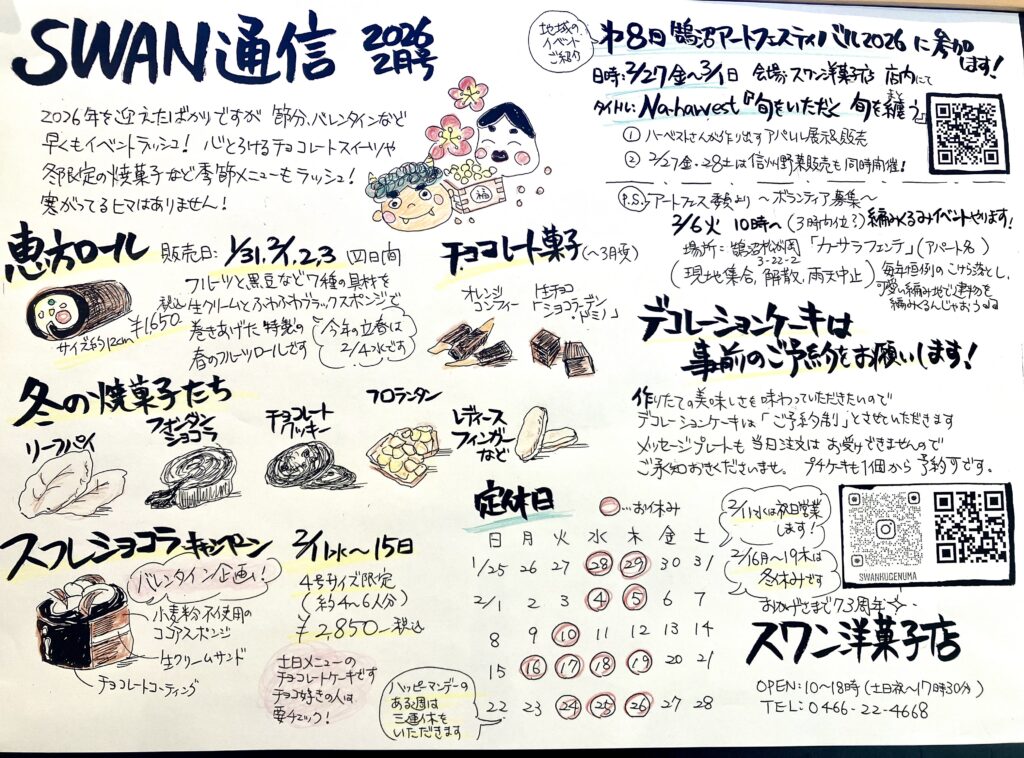 SWAN通信 2026 2月号
2026年を迎えたばかりですが 節分、バレンタインなど
早くもイベントラッシュ! 心とろけるチョコレートスイーツや
冬限定の焼菓子など季節メニューもラッシュ!
寒がってるヒマはありません!
福
恵方ロール 販売日: 1/31、2/1、2、3 四日間
フルーツと黒豆など7種の具材を
生クリームとふわふわブラックスポンジで
巻きあげた特製の
春のフルーツロールです
税込
¥1650
サイズ約12cm
今年の立春は
2/4水です
チョコレート菓子(〜3月受)
オレンジ
コンフィー
生チョコ
「ショコラーデン
ドミノ」
冬の焼菓子たち
リーフパイ
フォンダン
ショコラ
チョコレート
クッキー
フロランタン
レディース
フィンガー
など
スフレショコラキャンペーン 2/11水〜15日
バレンタイン企画!
小麦粉不使用の
ココアスポンジ
生クリームサンド
チョコレートコーティング
4号サイズ限定
(約4〜6人分)
¥2,850 税込
土日メニューの
チョコレートケーキです
チョコ好きの人は
要チェック!
地域の
イベント
ご紹介
第8回 鵠沼アートフェスティバル2026に参加
します!
日時: 2/27金〜3/1日 会場: スワン洋菓子店 店内にて
タイトル: Na-harvest『旬をいただく 旬を纏う』
まとう
① ハーベストさんが作り出すアパレル展示&販売
② 2/27金・28土は信州野菜販売も同時開催!
P.S. アートフェス事務より 〜ボランティア募集〜
2/6火 10時〜(3時位?)編みぐるみイベントやります!
場所: 鵠沼松が岡 「カーサラフェンテ」(アパート名)
3-22-2
(現地集合、解散、雨天中止)
毎年恒例のこけら落とし、
可愛い編み地で建物を
編みくるんじゃおう
デコレーションケーキは
事前のご予約をお願いします!
作りたての美味しさを味わっていただきたいので
デコレーションケーキは「ご予約制」とさせていただきます
メッセージプレートも当日注文はお受けできませんので
ご承知おきくださいませ。 プチケーキも1個から予約可です。
定休日
…お休み
日 月 火 水 木 金 土
1/25 26 27 28 29 30 31
2/1 2 3 4 5 6 7
8 9 10 11 12 13 14
15 16 17 18 19 20 21
22 23 24 25 26 27 28
ハッピーマンデーの
ある週は
三連休を
いただきます
2/11水は祝日営業
します!
2/16月〜19木は
冬休みです
SWANKUGENUMA
おかげさまで73周年
スワン洋菓子店
OPEN: 10〜18時(土日祝〜17時30分)
TEL: 0466-22-4668